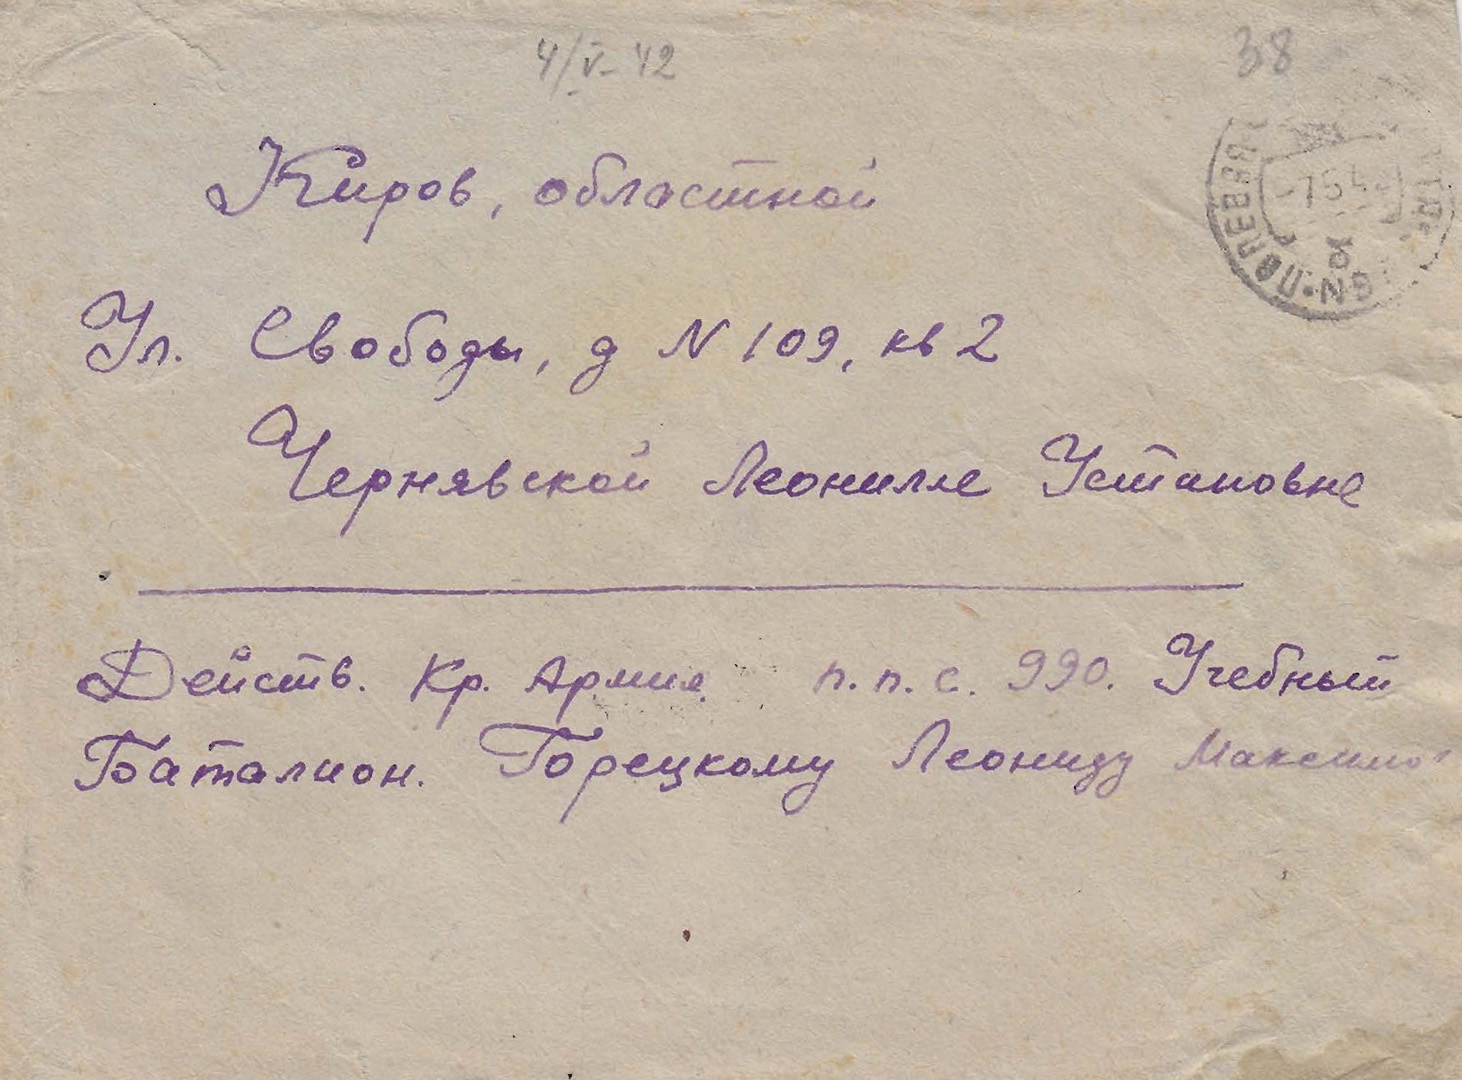 4/V-42
38
Киров, областной
Ул. Свободы, д N 109, кв 2
Чернявской Леонилле Установне
Действ. Кр. Армия п.п.с. 990. Учебный
Баталион. Горецкому Леониду
ПОЛЕВАЯ